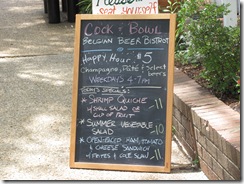 seat yourself
COCK & BOWL
BELGIAN BEER BISTROT
HAPPY HOUR $5
CHAMPAGNE, PÂTÉ & SELECT
BEERS
WEEKDAYS 4-7PM
TODAY'S SPECIALS:
* SHRIMP QUICHE
W/ SMALL SALAD OR 11
CUP OF FRUIT
* SUMMER VEGETABLE
SALAD 10
* OPEN-FACED HAM, TOMATO
& CHEESE SANDWICH
W/ FRITES & COLE SLAW 11